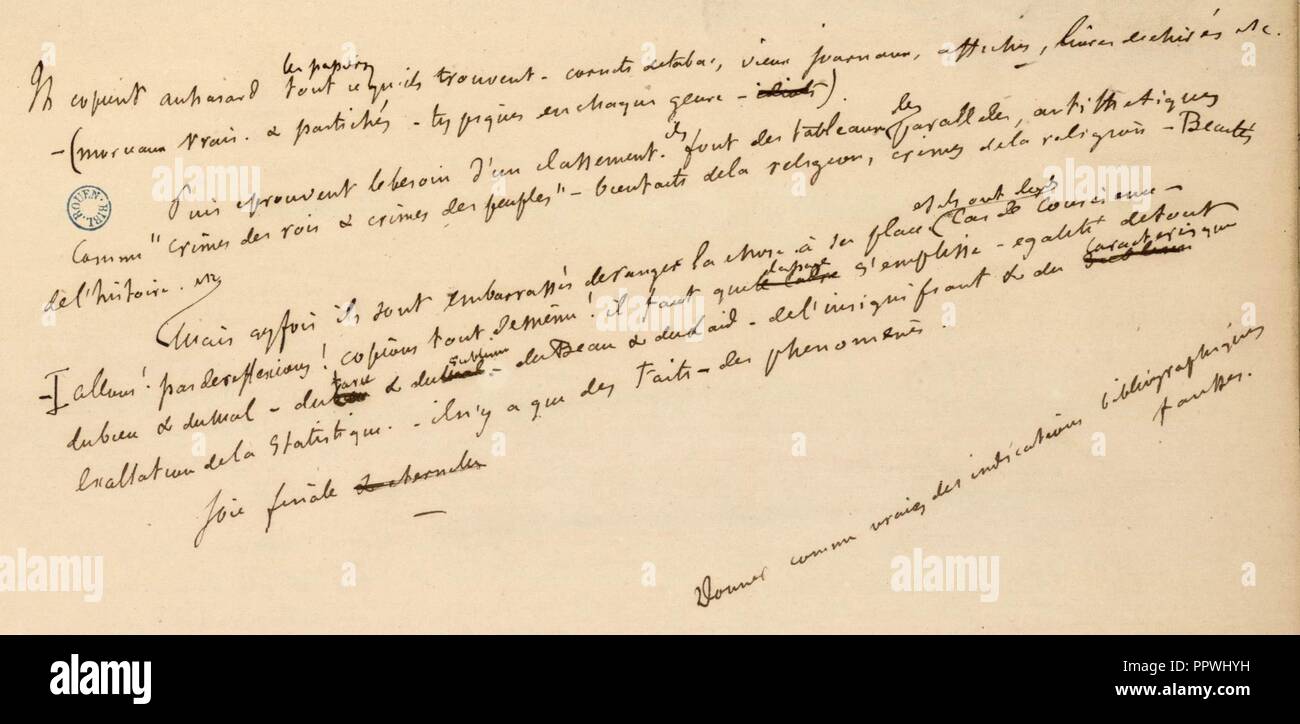 les papiers
Ils copient au hasard tout ce qu'ils trouvent - cornets de tabac, vieux journaux, affiches, livres déchirés etc.
- (morceaux vrais. & pastichés - typiques en chaque genre - idiots).
Puis eprouvent le besoin d'un classement. ils font des tableaux, les paralleles, antithetiques
comme "crimes des rois & crimes des peuples" - bienfaits de la religion, crimes de la religion - Beautés
de l'histoire. etc
et ils ont des
Mais qqfois ils sont embarrassés de ranger la chose à sa place (Cas de Conscience -
- allons! pas de reflexions! copions tout de même! il faut que la page le cadre s'emplisse - egalité de tout
du bien & du mal - du farce & du sublime - du Beau & du Laid - de l'insignifiant & du caracteristique
exaltation de la Statistique. - il n'y a que des faits - des phenomenès.
Joie finale & eternelle
Donner comme vraies des indications bibliographiques
fausses.
ROUEN BIBL.
a alamy stock photo
alamy
Image ID: PPWHYH
www.alamy.com